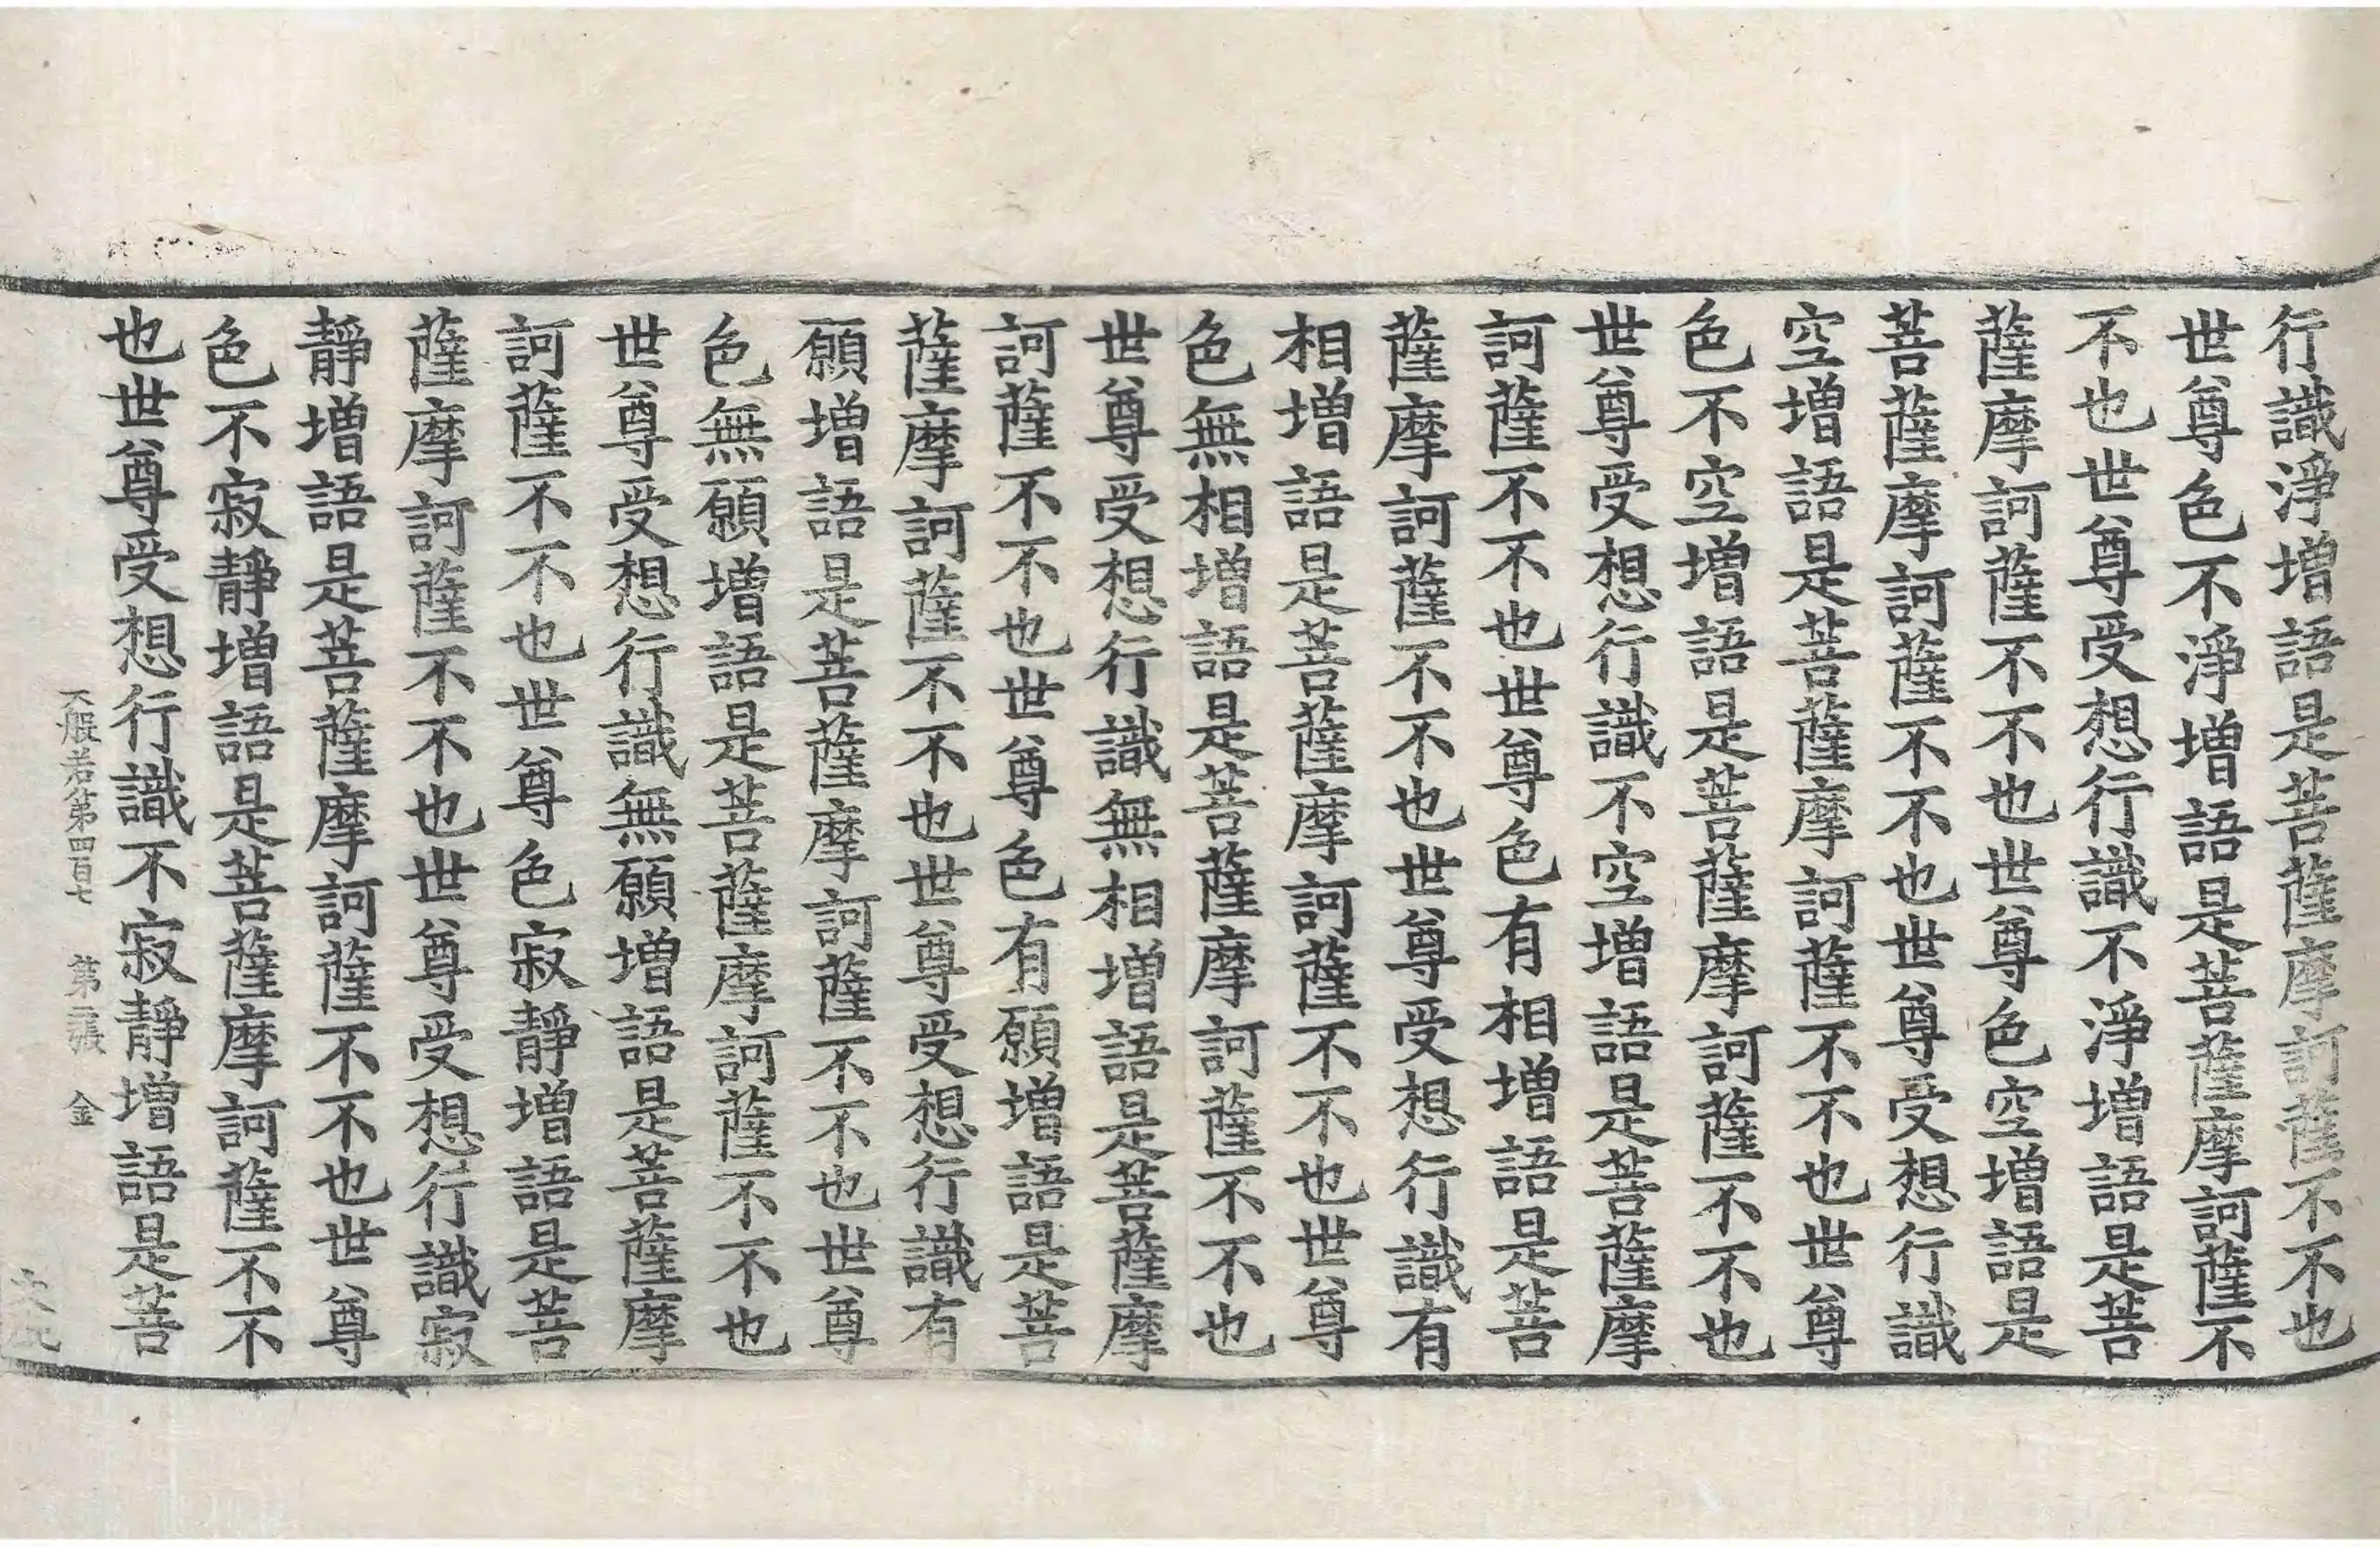 行識淨增語是菩薩摩訶薩不不也
世尊色不淨增語是菩薩摩訶薩不
不也世尊受想行識不淨增語是菩
薩摩訶薩不不也世尊色空增語是
菩薩摩訶薩不不也世尊受想行識
空增語是菩薩摩訶薩不不也世尊
色不空增語是菩薩摩訶薩不不也
世尊受想行識不空增語是菩薩摩
訶薩不不也世尊色有相增語是菩
薩摩訶薩不不也世尊受想行識有
相增語是菩薩摩訶薩不不也世尊
色無相增語是菩薩摩訶薩不不也
世尊受想行識無相增語是菩薩摩
訶薩不不也世尊色有願增語是菩
薩摩訶薩不不也世尊受想行識有
願增語是菩薩摩訶薩不不也世尊
色無願增語是菩薩摩訶薩不不也
世尊受想行識無願增語是菩薩摩
訶薩不不也世尊色寂靜增語是菩
薩摩訶薩不不也世尊受想行識寂
靜增語是菩薩摩訶薩不不也世尊
色不寂靜增語是菩薩摩訶薩不不
也世尊受想行識不寂靜增語是菩
般若第四百七 第二張 金